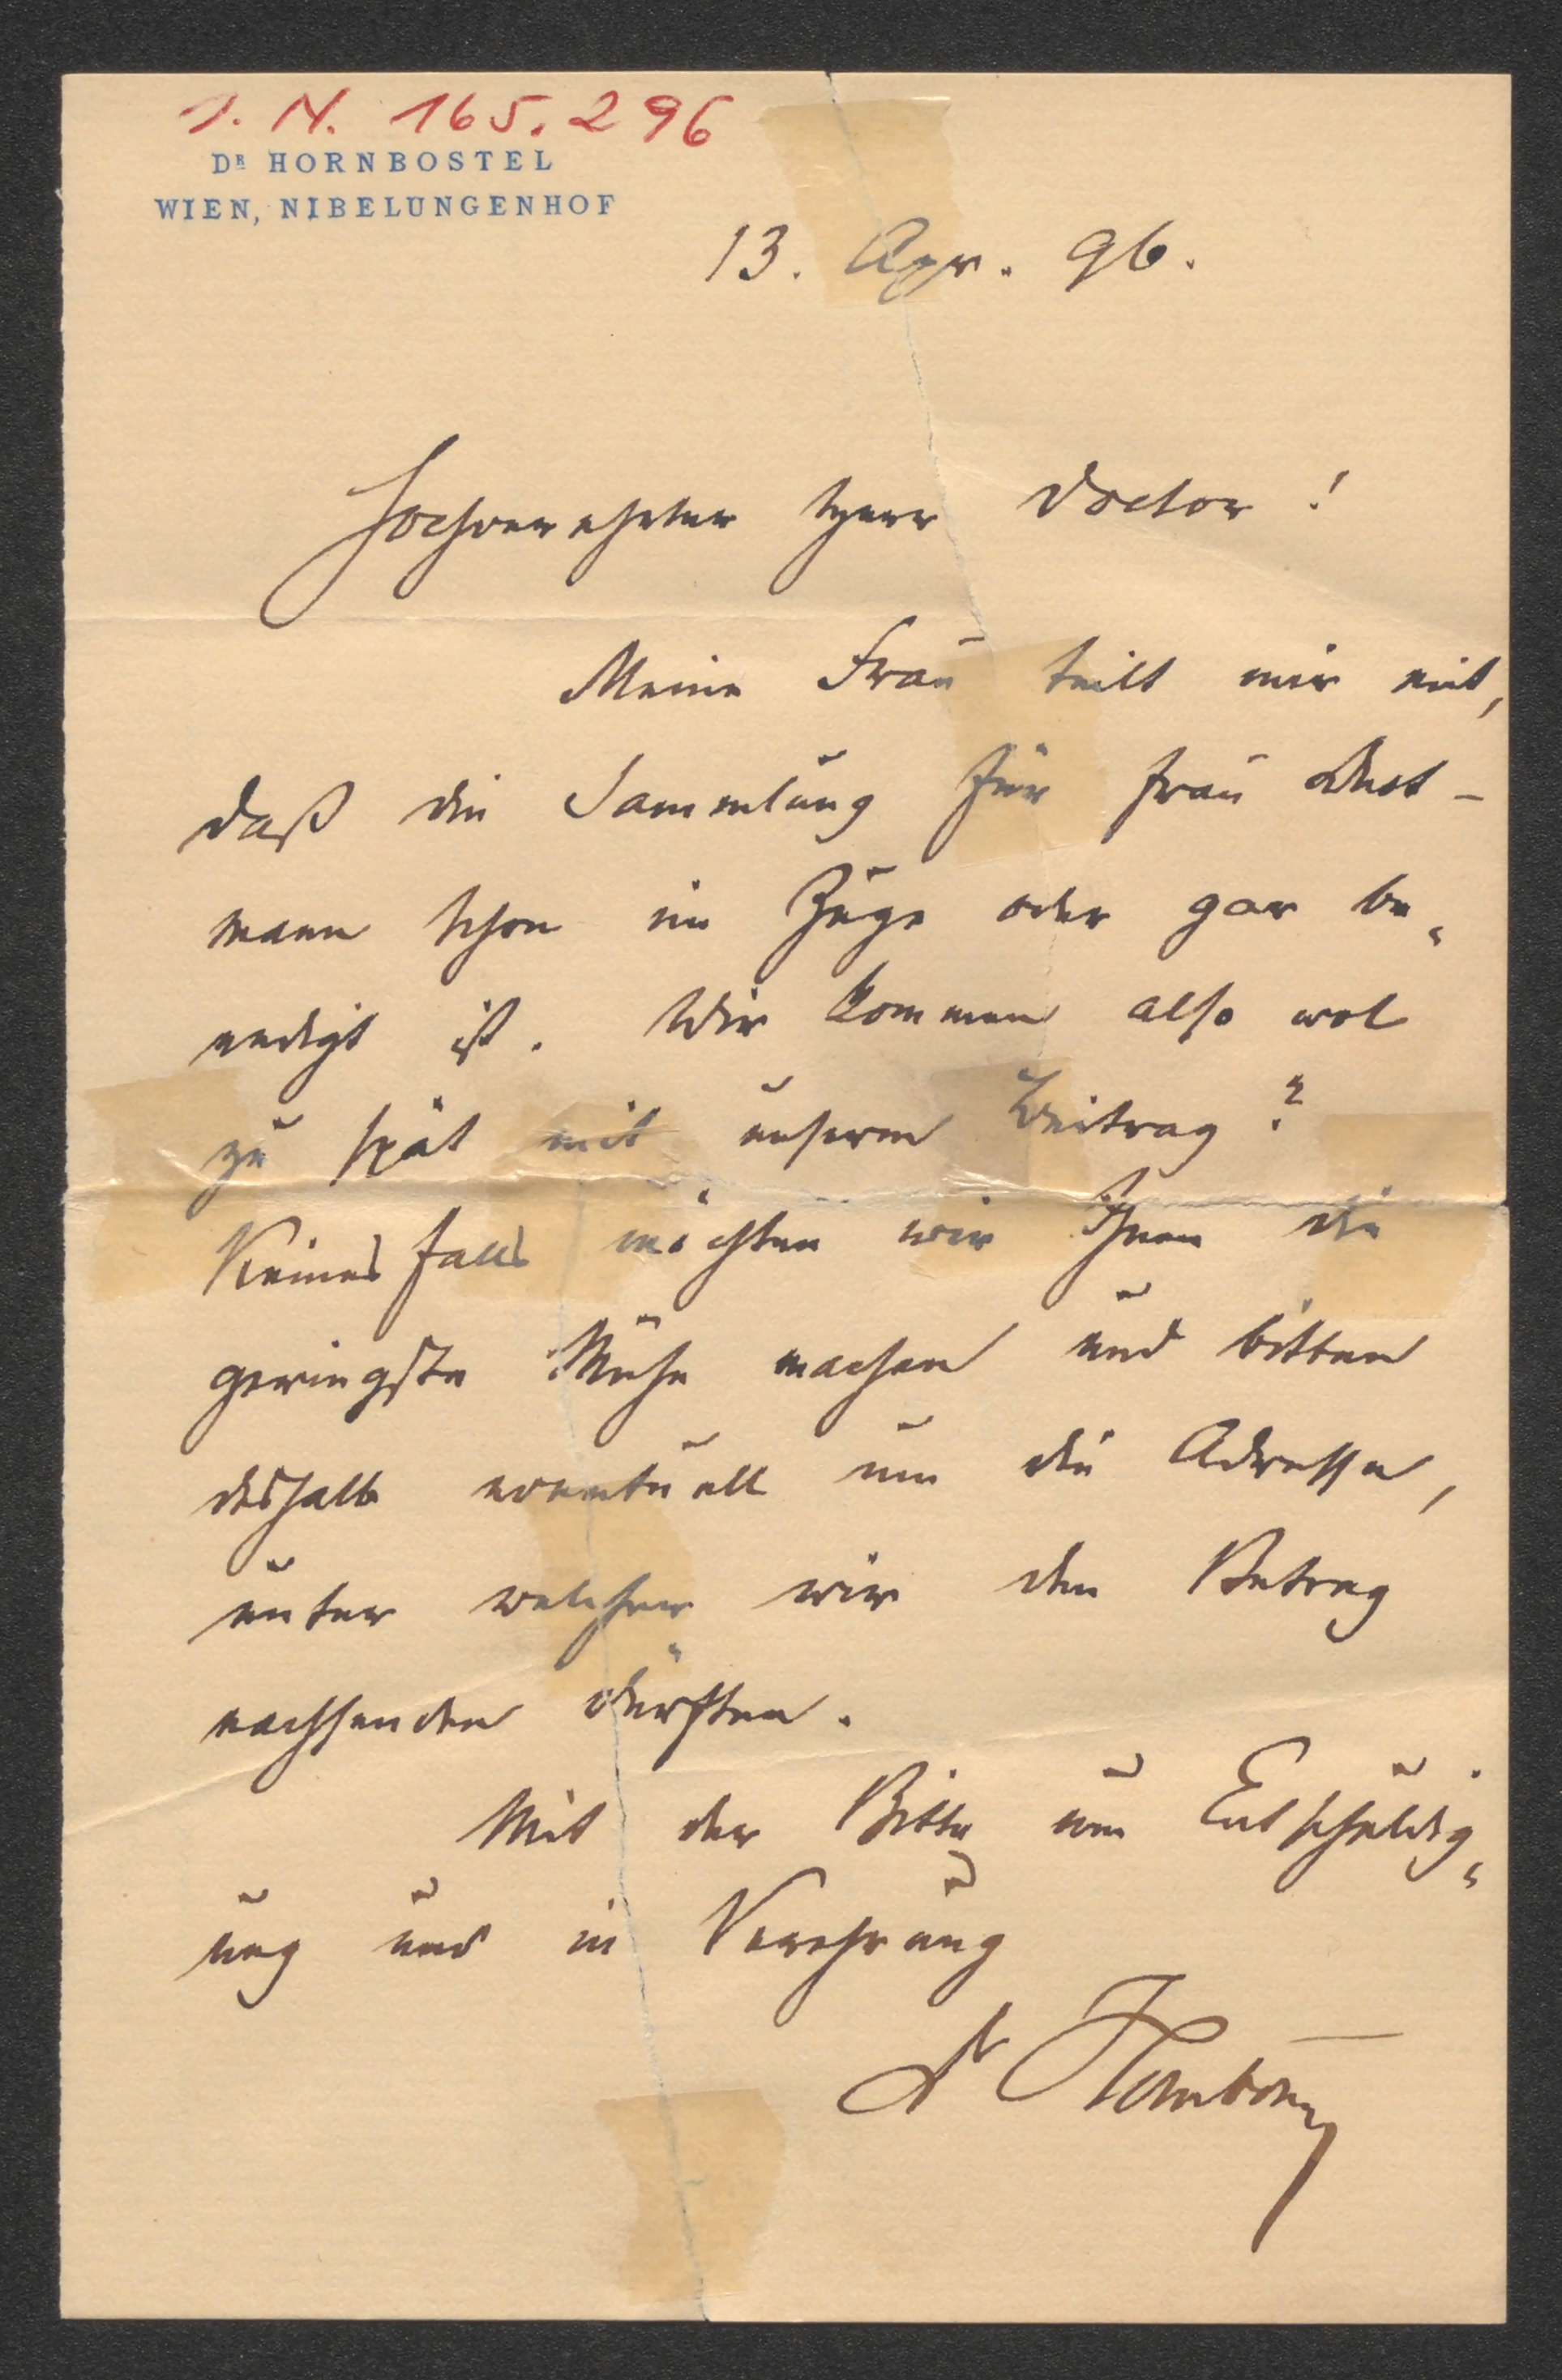 I. N. 165.296
DR HORNBOSTEL
WIEN, NIBELUNGENHOF
13. Apr. 96.
Hochverehrter Herr Doctor!
Meine Frau teilt mir mit,
daß die Sammlung für Frau
mann schon im Zuge oder gar be„
endigt ist. Wir kommen also wol
zu spät mit unserem Beitrag?
Keinesfalls möchten wir Ihnen die
geringste Mühe machen und bitten
deshalb eventuell um die Adresse,
unter welcher wir den Betrag
nachsenden dürften.
Mit der Bitte um Entschuldig„
ung und in Verehrung
Dr Hornbostel